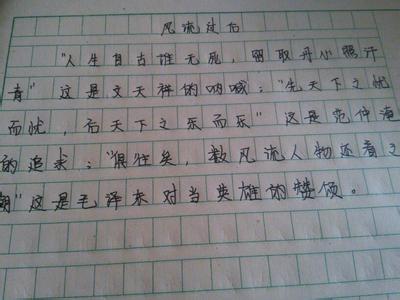 风流过后
"人生自古谁无死，留取丹心照汗
青"这是文天祥的呐喊；"先天下之忧
而忧，后天下之乐而乐"这是范仲淹
的追求；"俱往矣，数风流人物还看今
朝"这是毛泽东对当英雄的赞颂。